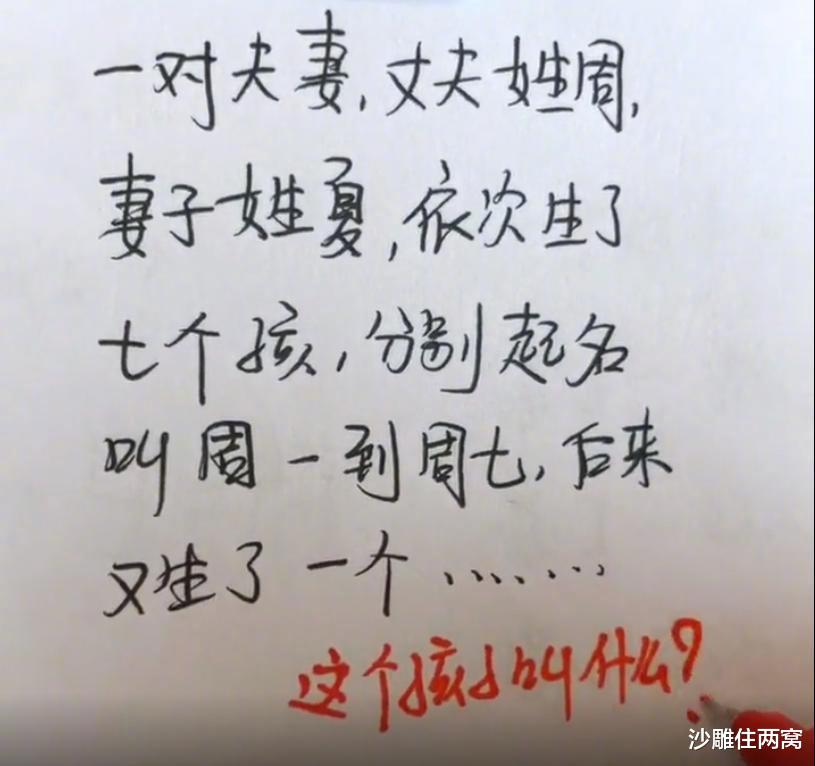 一对夫妻,丈夫姓周,
妻子姓夏,依次生了
七个孩,分别起名
叫周一到周七,后来
又生了一个……
这个孩子叫什么?
沙雕住两窝